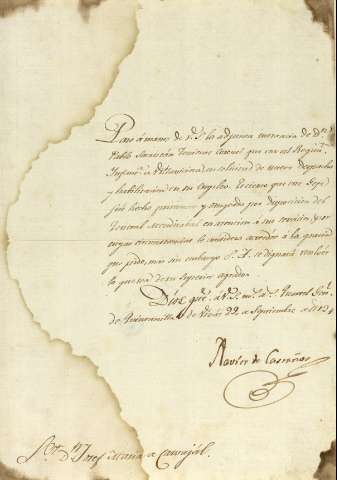 Paso á mano de V.S. la adjunta instancia de Dn
Pablo Teniente Coronel que fue del Regimto
Infanta de solicitud de nuevo Despacho
y habilitacion en su empleo. Creo que
fué hecho prisionero y por disposicion del
Tribunal en atencion á sus servicios, y por
cuyas circunstancias le considero acredor á la gracia
que pide, mas sin embargo S.A. se dignará resolver
lo que sea de su superior agrado.
Dios gue. á V.S. ms. as. Quartel Genl.
de Quintanilla de 22 de Septiembre de 812
Xavier de Castaños
Sor. Dn. Josef Maria de Carvajál.